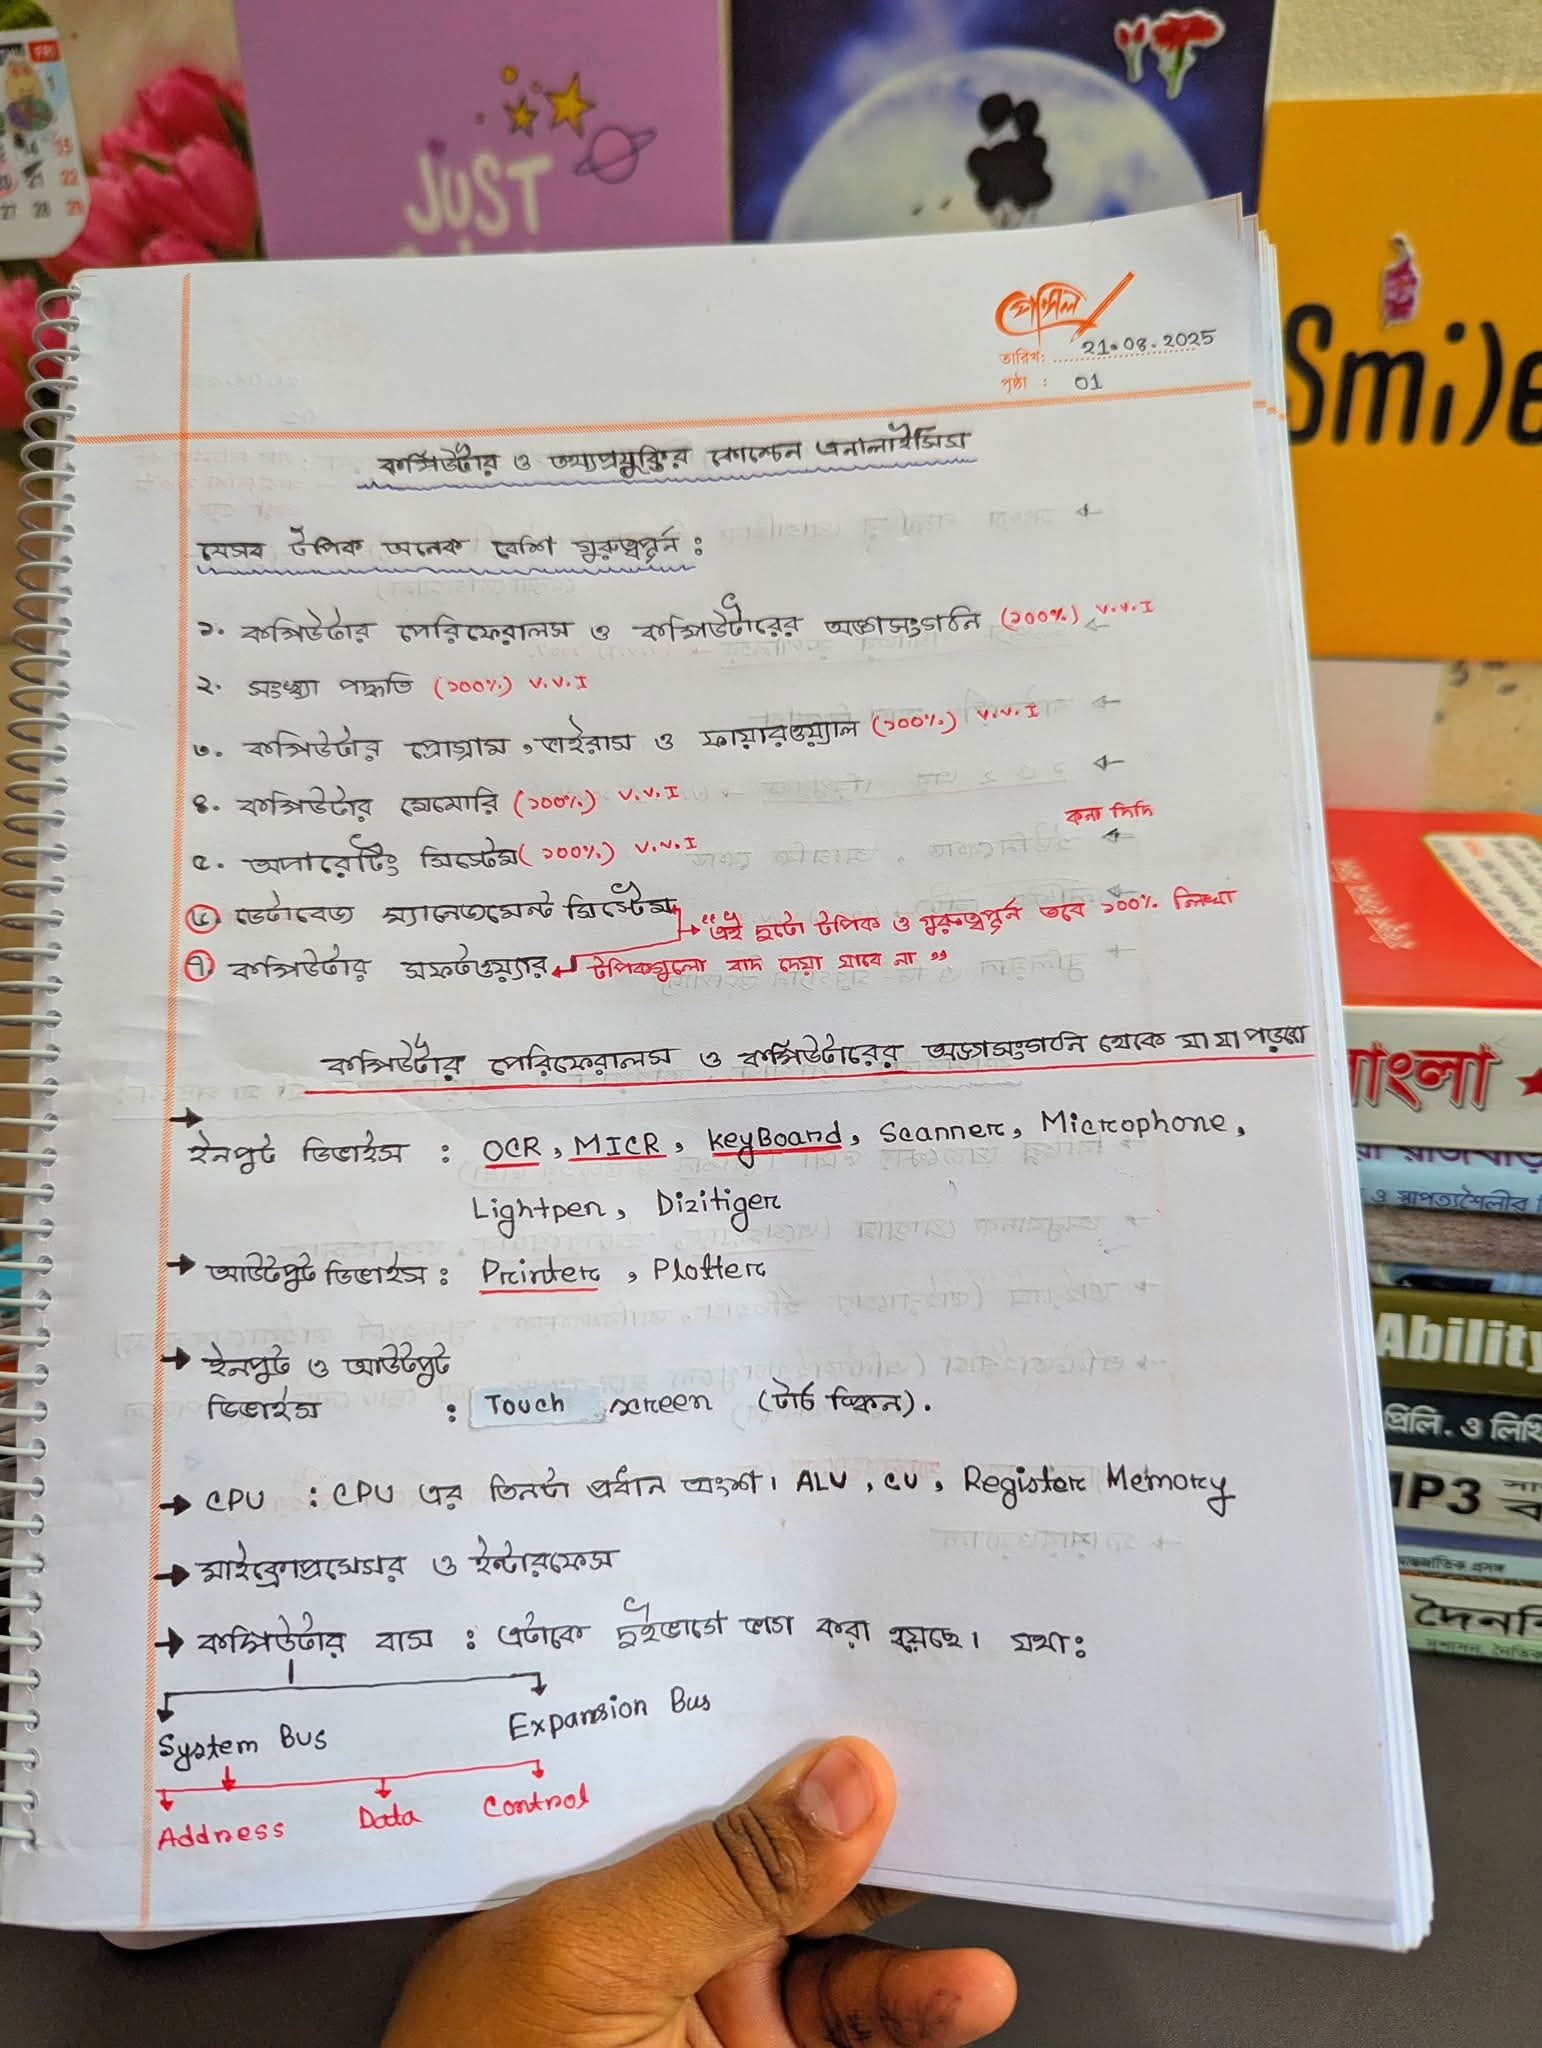 FRI
1
14 15
20 21 22
27 28 29
JUST
Smile
পেন্সিল
তারিখ: 21.08.2025
পৃষ্ঠা : 01
কম্পিউটার ও তথ্যপ্রযুক্তির কোশ্চেন এনালাইসিস
যেসব টপিক অনেক বেশি গুরুত্বপূর্ন :
১. কম্পিউটার পেরিফেরালস ও কম্পিউটারের অঙ্গসংগঠনি (১০০%) v.v.I
২. সংখ্যা পদ্ধতি (১০০%) v.v.I
৩. কম্পিউটার প্রোগ্রাম, ভাইরাস ও ফায়ারওয়্যাল (১০০%) v.v.I
৪. কম্পিউটার মেমোরি (১০০%) v.v.I
কনা দিদি
৫. অপারেটিং সিস্টেম (১০০%) v.v.I
৬. ডেটাবেজ ম্যানেজমেন্ট সিস্টেম → "এই দুটো টপিক ও গুরুত্বপূর্ন তবে ১০০% লিখা
৭. কম্পিউটার সফটওয়্যার ← টপিকগুলো বাদ দেয়া যাবে না"
কম্পিউটার পেরিফেরালস ও কম্পিউটারের অঙ্গসংগঠনি থেকে যা যা পড়বো
→ ইনপুট ডিভাইস : OCR, MICR, KeyBoard, Scanner, Microphone,
Lightpen, Dizitiger
→ আউটপুট ডিভাইস : Printer, Plotter
→ ইনপুট ও আউটপুট
ডিভাইস : Touch screen (টার্চ স্কিন).
→ CPU : CPU এর তিনটা প্রধান অংশ। ALU, CU, Register Memory
→ মাইক্রোপ্রসেসর ও ইন্টারফেস
→ কম্পিউটার বাস : এটাকে দুইভাগে ভাগ করা হয়েছে। যথা:
System Bus Expansion Bus
Address Data Control
বাংলা
Ability
প্রিলি. ও লিখি
MP3
দৈনন্দি